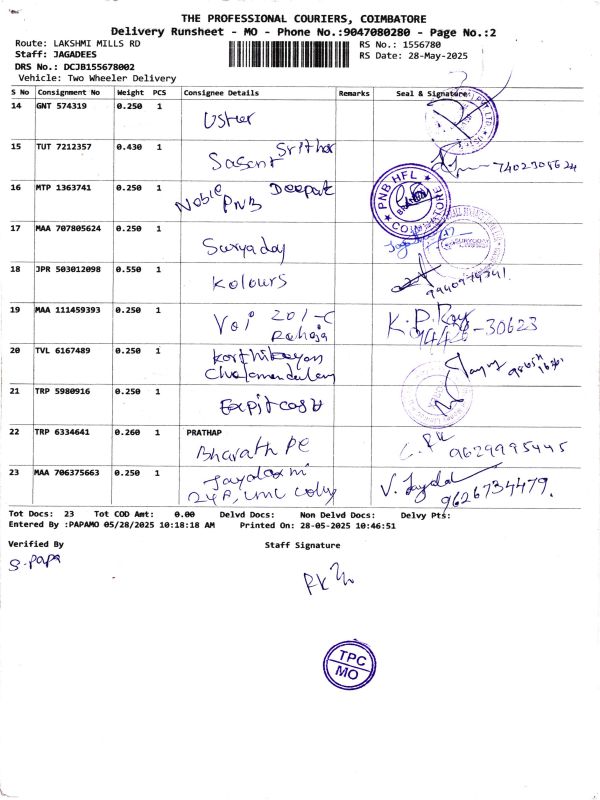 THE PROFESSIONAL COURIERS, COIMBATORE
Delivery Runsheet - MO - Phone No.:9047080280 - Page No.:2
Route: LAKSHMI MILLS RD
RS No.: 1556780
Staff: JAGADEES
RS Date: 28-May-2025
DRS No.: DCJB155678002
Vehicle: Two Wheeler Delivery
S No Consignment No Weight PCS Consignee Details Remarks Seal & Signature
14 GNT 574319 0.250 1
15 TUT 7212357 0.430 1 Sasent Srither 7402308624
16 MTP 1363741 0.250 1 Noble PNB Deepak
PNB HFL
17 MAA 707805624 0.250 1 Suryaday
18 JPR 503012098 0.550 1 Kolours
19 MAA 111459393 0.250 1 Voi 201-C
Raheja
20 TVL 6167489 0.250 1 Karthikeyan
21 TRP 5980916 0.250 1
22 TRP 6334641 0.260 1 PRATHAP
Bharath PE 9629995445
23 MAA 706375663 0.250 1 Jayalaxmi V. 9626734479.
Tot Docs: 23 Tot COD Amt: 0.00 Delvd Docs: Non Delvd Docs: Delvy Pts:
Entered By :PAPAMO 05/28/2025 10:18:18 AM Printed On: 28-05-2025 10:46:51
Verified By Staff Signature
S. Papa
TPC
MO